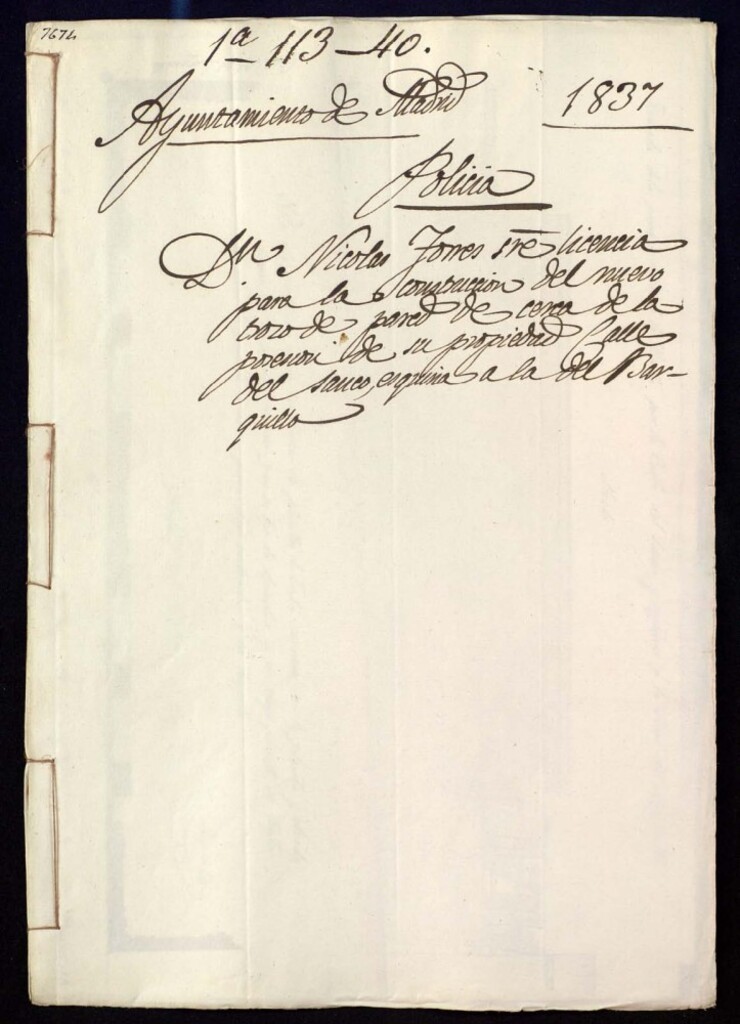 7674
1ª 113-40.
Ayuntamiento de Madrid 1837
Policia
Dn Nicolas Torres sre licencia
para la construccion del nuevo
trozo de pared de cerca de la
posesion de su propiedad Calle
del sauco, esquina a la del Bar-
quillo